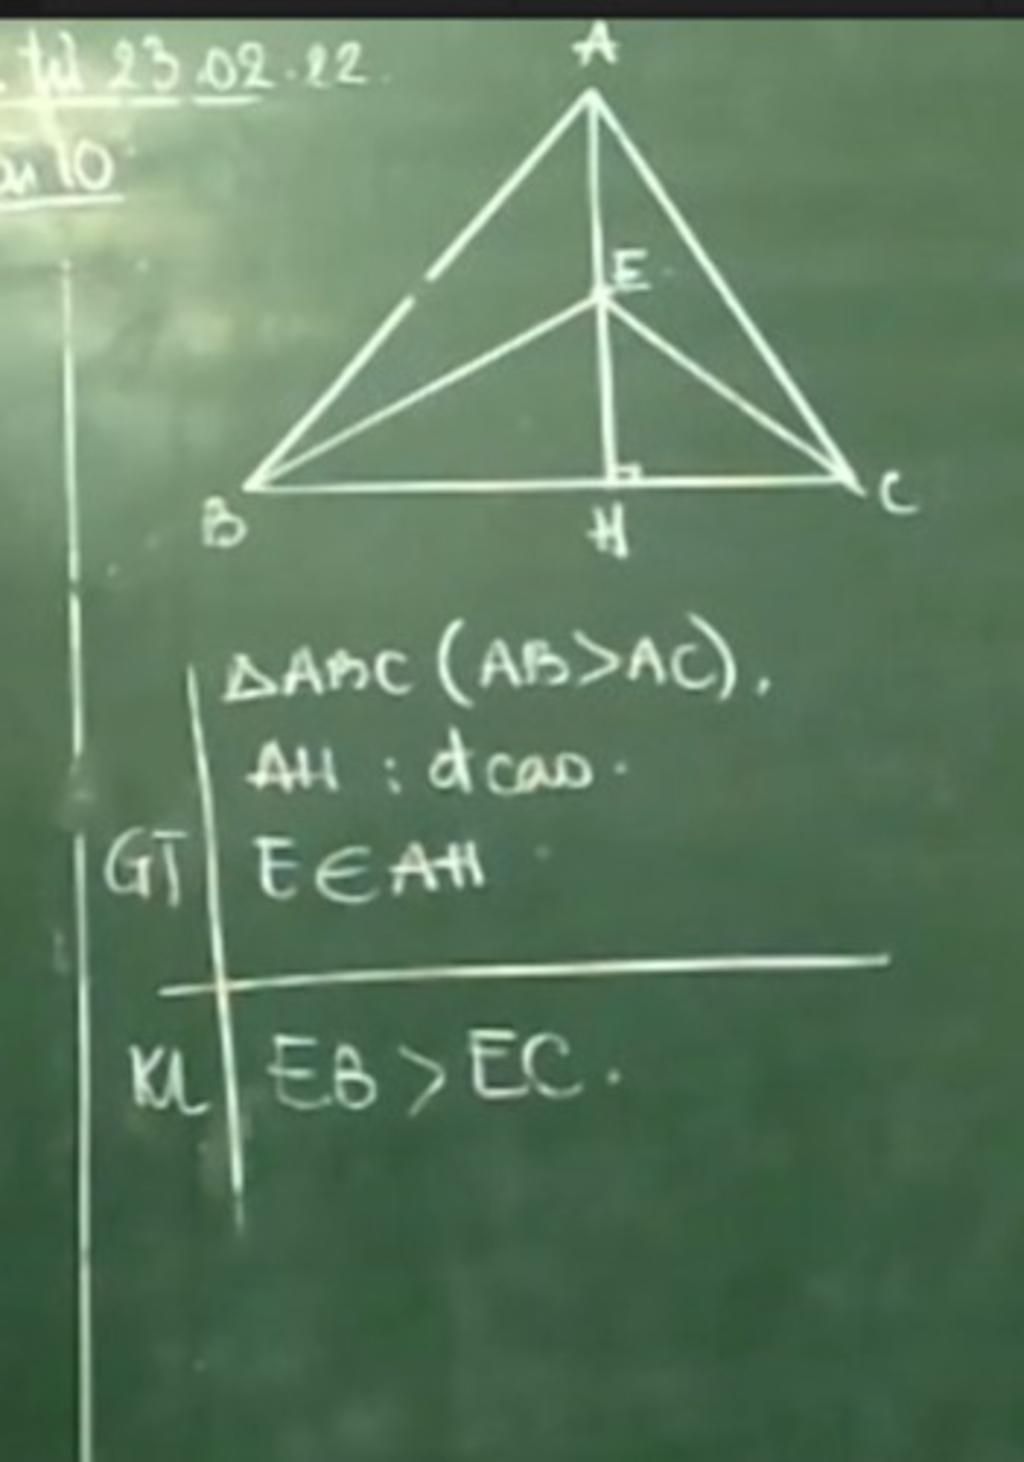 23.02.22.
10
A
E
B
H
C
ΔABC (AB>AC).
AH : đcao.
GT
E∈AH
KL
EB > EC.